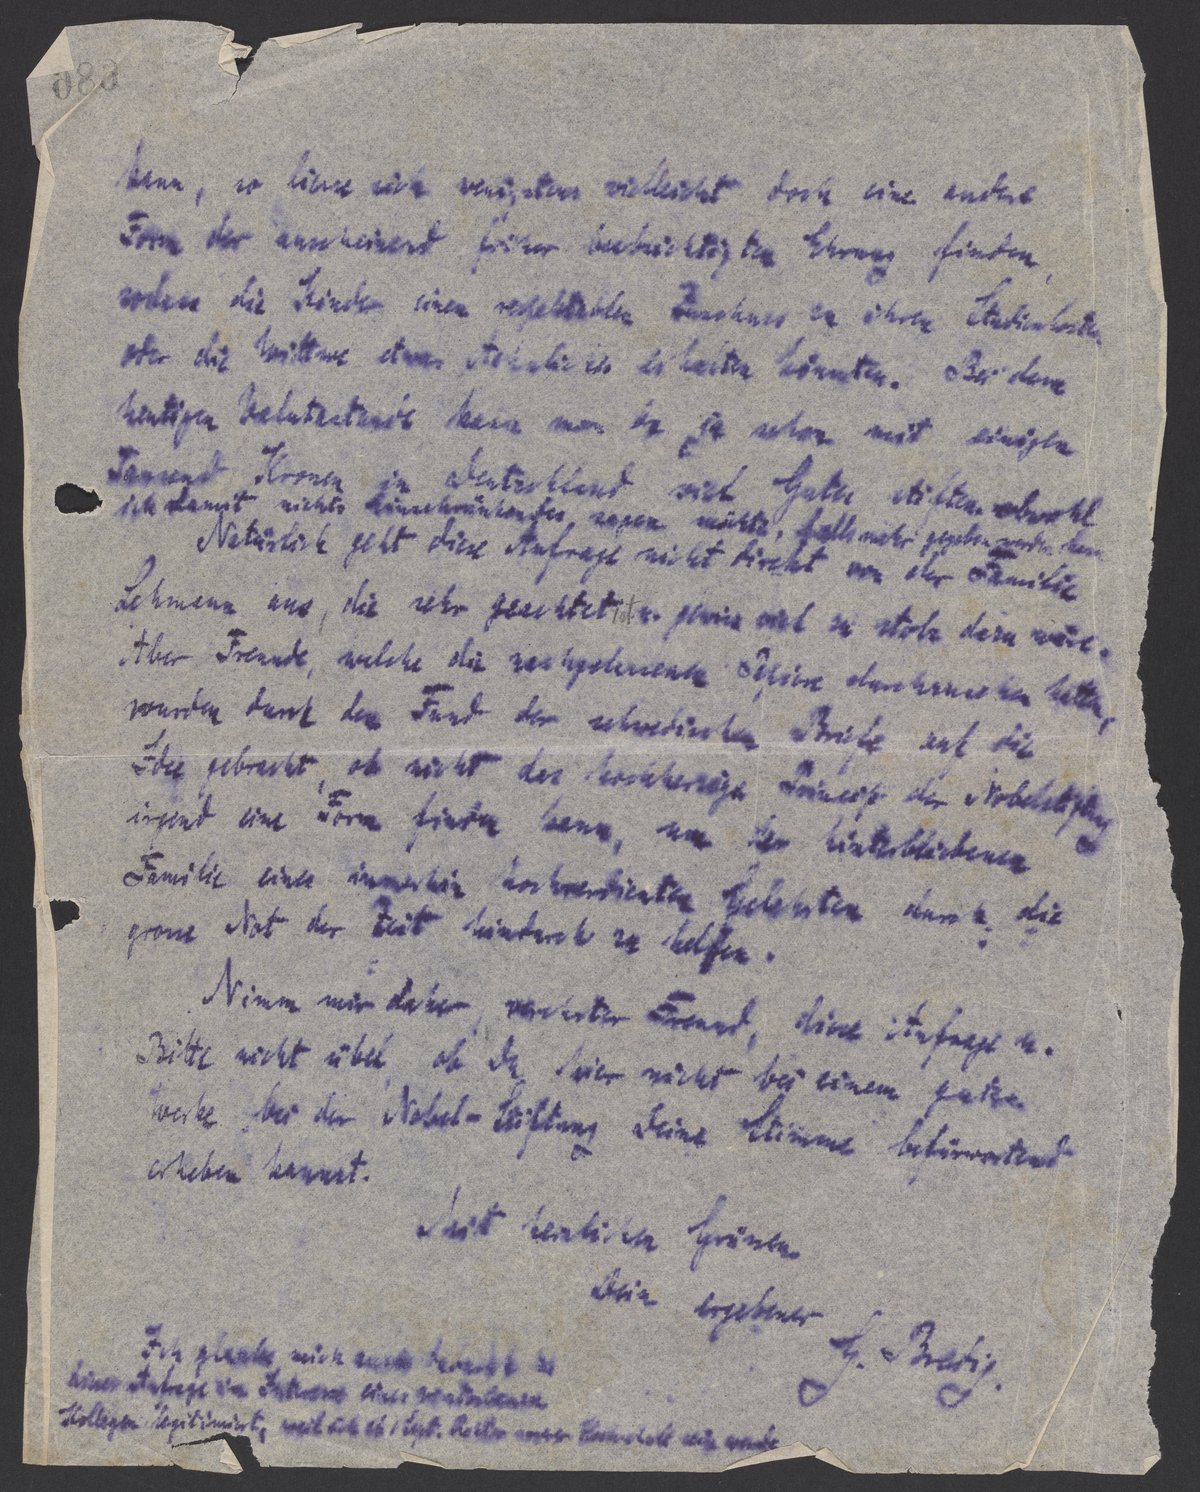 kann, so liesse sich wenigstens vielleicht doch eine andere
Form der anscheinend früher beabsichtigten Ehrung finden,
sodass die Kinder einen Zuschuss zu ihren Studienkosten
oder die Wittwe etwas Aehnliches erhalten könnten. Bei dem
heutigen Valutastande kann man da ja schon mit einigen
Tausend Kronen in Deutschland viel Gutes stiften obwohl
ich damit nichts einschränkendes sagen möchte, falls mehr gegeben werden kann
Natürlich geht diese Anfrage nicht direkt von der Familie
Lehmann aus, die sehr geachtet ist u. gewiss viel zu stolz dazu wäre.
Aber Freunde, welche die nachgelassenen Papiere durchzusehen hatten,
wurden durch den Fund der schwedischen Briefe auf die
Idee gebracht, ob nicht das hochherzige Princip der Nobelstiftung
irgend eine Form finden kann, um der hinterbliebenen
Familie eines immerhin hochverdienten Gelehrten durch die
grosse Not der Zeit hindurch zu helfen.
Nimm mir daher, verehrter Freund, diese Anfrage u.
Bitte nicht übel, ob Du hier nicht bei einem guten
Werke bei der Nobel-Stiftung Deine Stimme befürwortend
erheben kannst.
Mit herzlichen Grüssen
Dein ergebener
G. Bredig.
Ich glaube mich auch
Anfrage im Interesse eines verstorbenen
Kollegen legitimiert, weil ich ab 1 Sept. Rektor unserer Hochschule sein werde
686